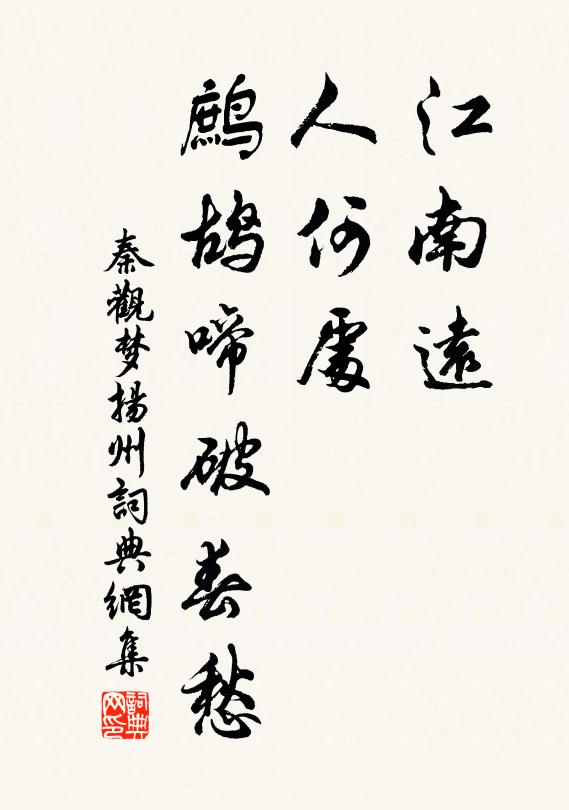 江南遠
人何處
鷓鴣啼破春愁
秦觀梦揚州詞典網集
詞典网印